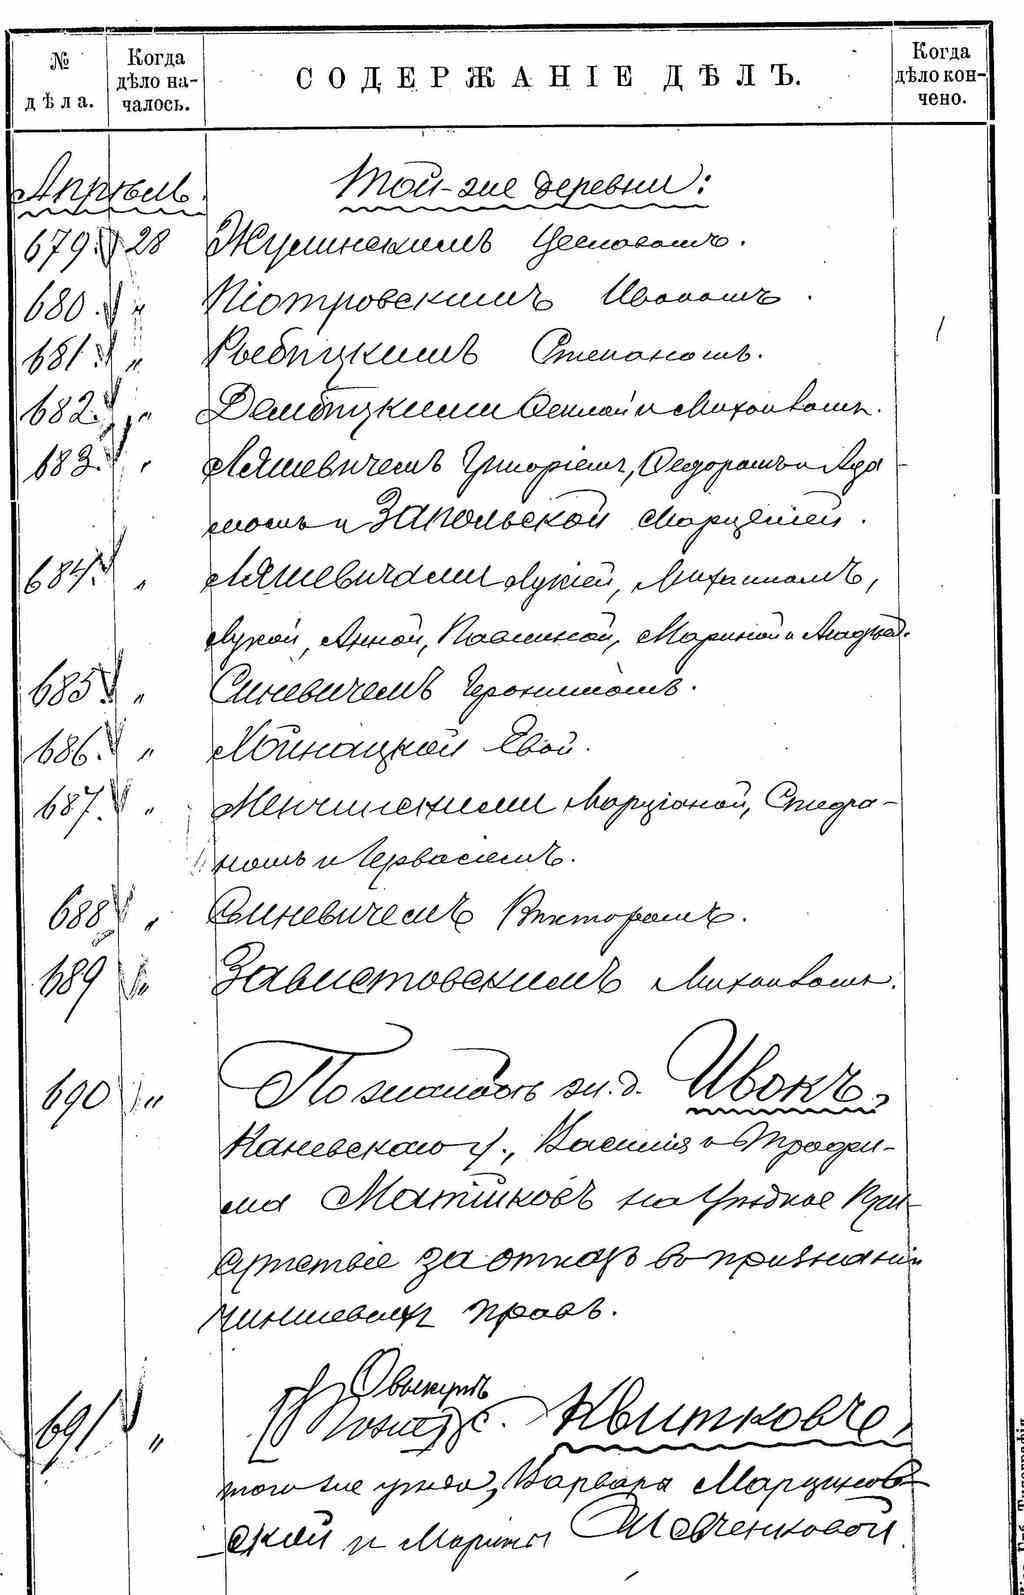 № дѣла.
Когда дѣло началось.
СОДЕРЖАНІЕ ДѢЛЪ.
Когда дѣло кончено.
Апрѣль.
Той-же деревни:
679. 28 Жулинскимъ
680. " Піотровскимъ Иваномъ.
681. " Рыбицкимъ Степаномъ.
682. " Дембицкими Феклой и Михаиломъ.
683. " Ляшевичемъ Григоріемъ, Федоромъ и Ада-
момъ и Запольской Марцелей.
684. " Ляшевичами Лукіей, Михаиломъ,
Лукой, Анной, Павлиной, Мариной и
685. " Синевичемъ Геронимомъ.
686. " Хойнацкой Евой.
687. " Менчинскими Марціаной, Стефа-
номъ и Гервасіемъ.
688 " Синевичемъ Викторомъ.
689 " Завистовскимъ Михаиломъ.
690 " По жалобѣ ж. д. Ивокъ,
Каневскаго у., Василія и Трофи-
ма на Уѣздное При-
сутствіе за отказъ въ признаніи
чиншевыхъ правъ.
691 " О выкупѣ
Квитковче,
того же уѣзда, Варвара Марцинов-
ской и Марины Шевченковой